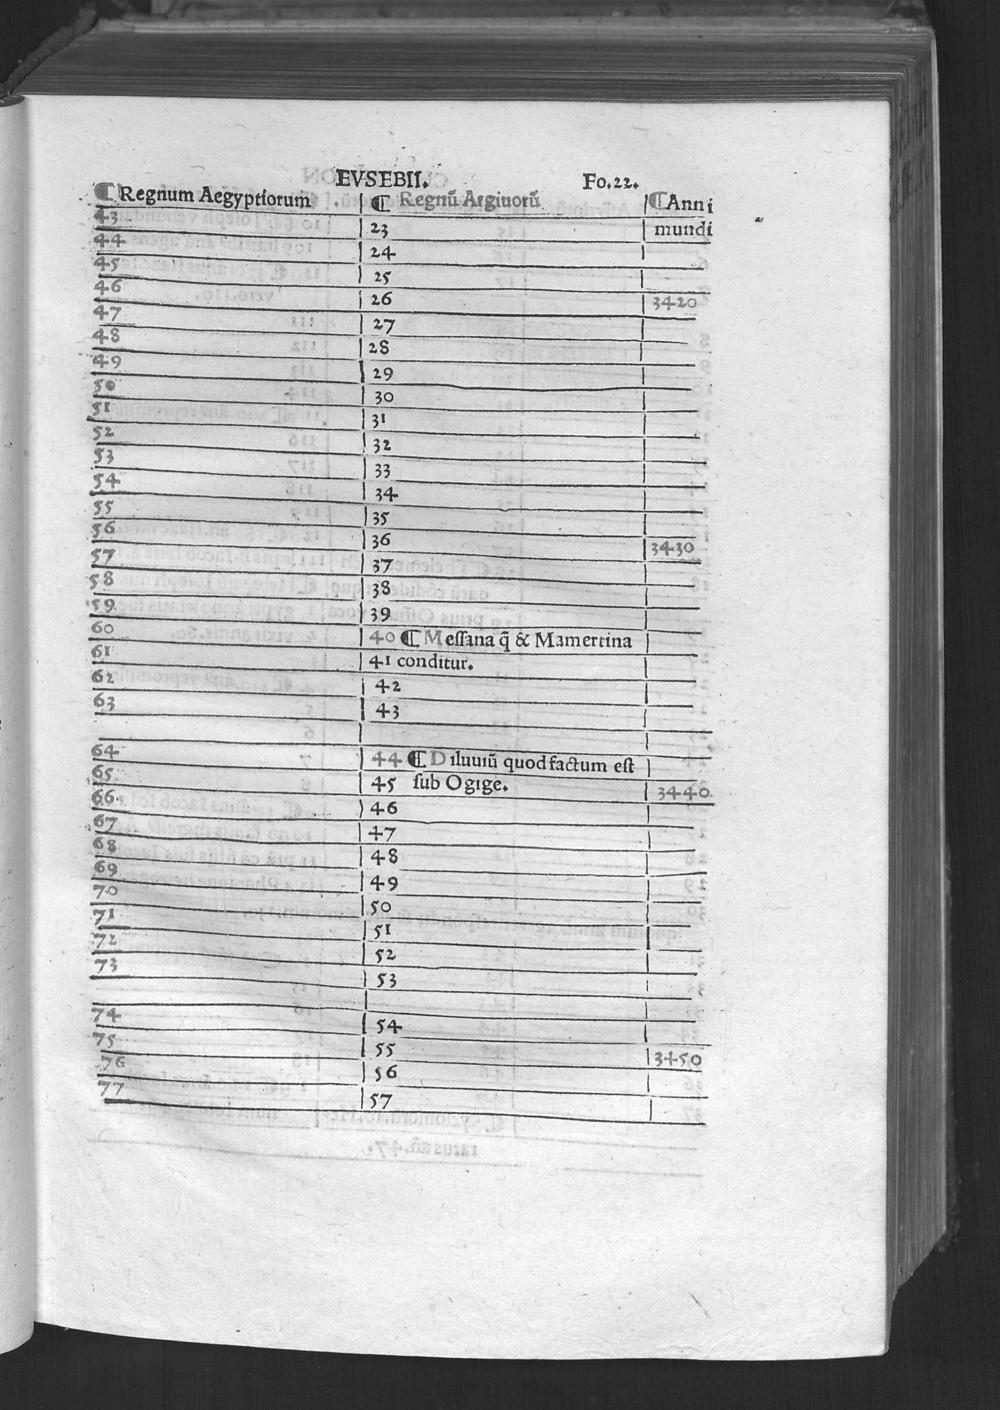 EVSEBII. Fo.22.
¶ Regnum Aegyptiorum ¶ Regnũ Argiuorũ ¶ Anni
43 23 mundi
44 24
45 25
46 26 3420
47 27
48 28
49 29
50 30
51 31
52 32
53 33
54 34
55 35
56 36 3430
57 37
58 38
59 39
60 40 ¶ Messana q̃ & Mamertina
61 41 conditur.
62 42
63 43
64 44 ¶ Diluuiũ quod factum est
65 45 sub Ogige. 3440
66 46
67 47
68 48
69 49
70 50
71 51
72 52
73 53
74 54
75 55 3450
76 56
77 57